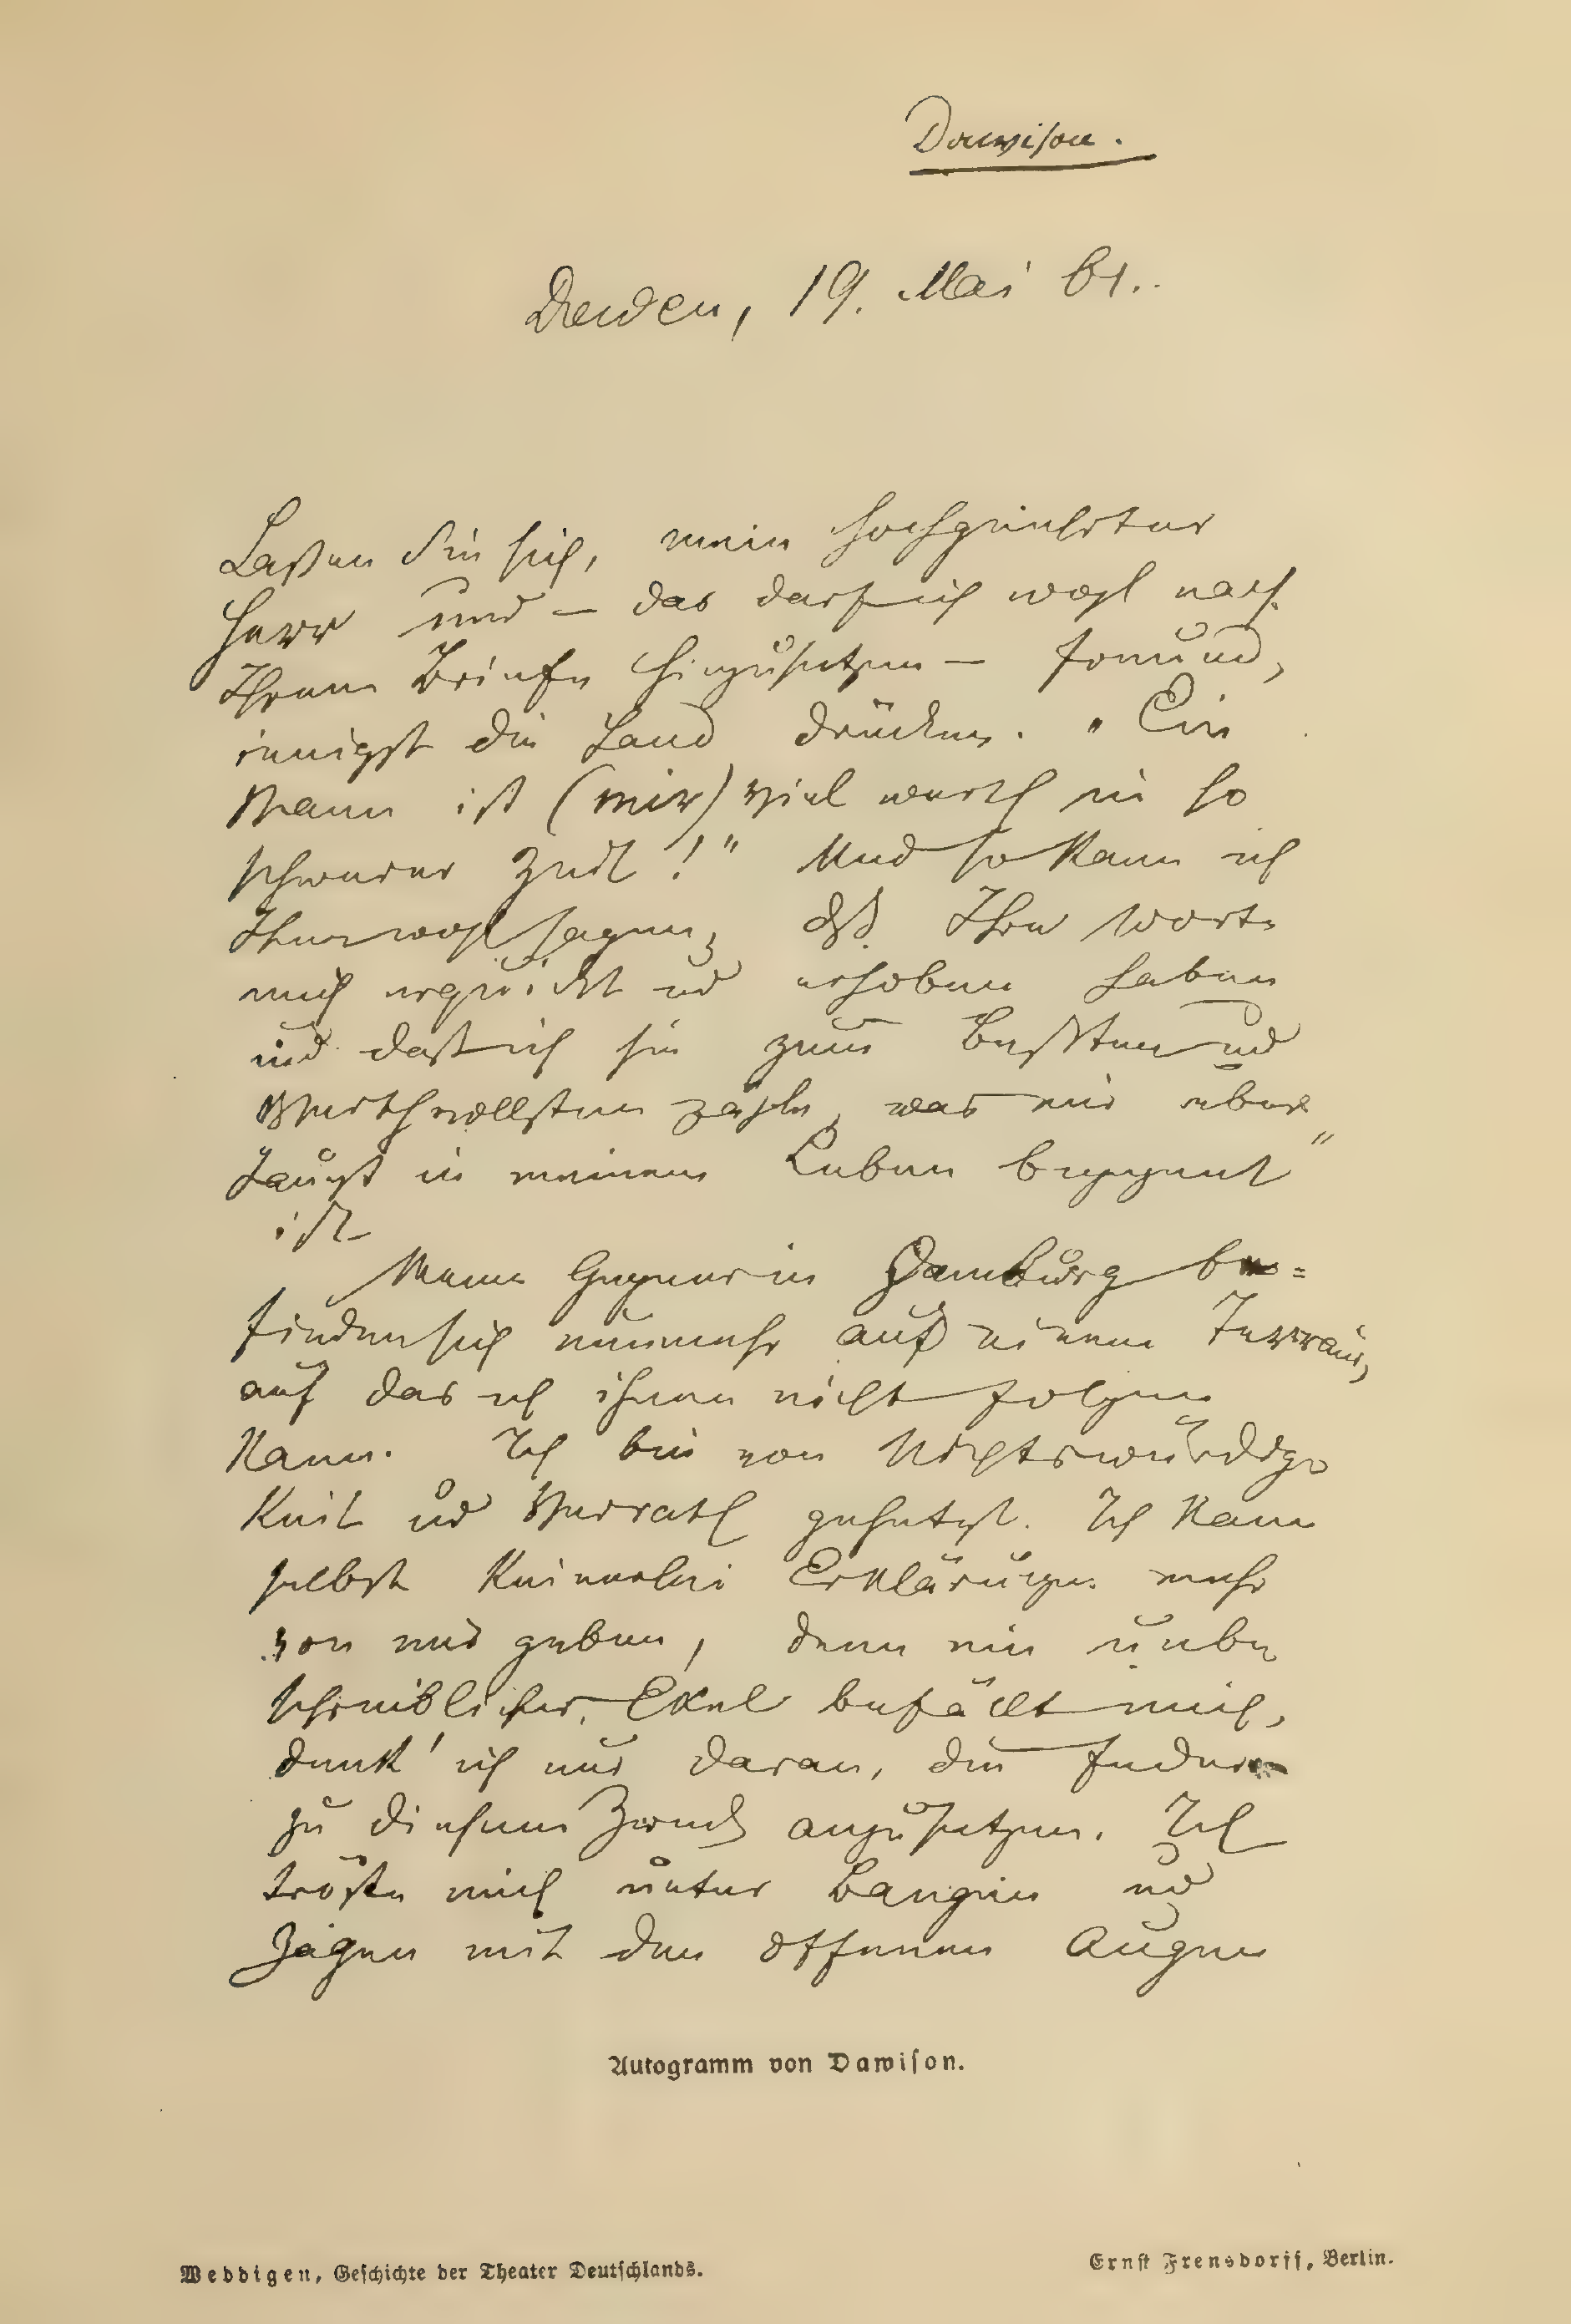 Dawison.
Dresden, 19. Mai 61.
Laßen Sie sich, mein hochgeehrter
Herr und — das darf ich wohl nach
Ihrem Briefe hinzusetzen — Freund,
innigst die Hand drücken. "Ein
Mann ist (mir) viel werth in so
schwerer Zeit!" Und so kann ich
Ihnen wohl sagen, dß Ihre Worte
mich erquickt und erhoben haben
und daß ich sie zum Besten und
Werthvollsten zähle, was mir über"
haupt in meinem Leben begegnet
ist.
Meine Gegner in Hamburg be=
finden sich nunmehr auf einem Terrain,
auf das ich ihnen nicht folgen
kann. Ich bin von Nichtswürdig
keit und Verrath gehetzt. Ich kann
selbst keinerlei Erklärungen mehr
von mir geben, denn ein unbe
schreiblicher Ekel befällt mich,
denk' ich nur daran, die Feder
zu diesem Zweck anzusetzen. Ich
tröste mich unter Bangen und
Zagen mit den offenen Augen
Autogramm von Dawison.
Weddigen, Geschichte der Theater Deutschlands.
Ernst Frensdorff, Berlin.